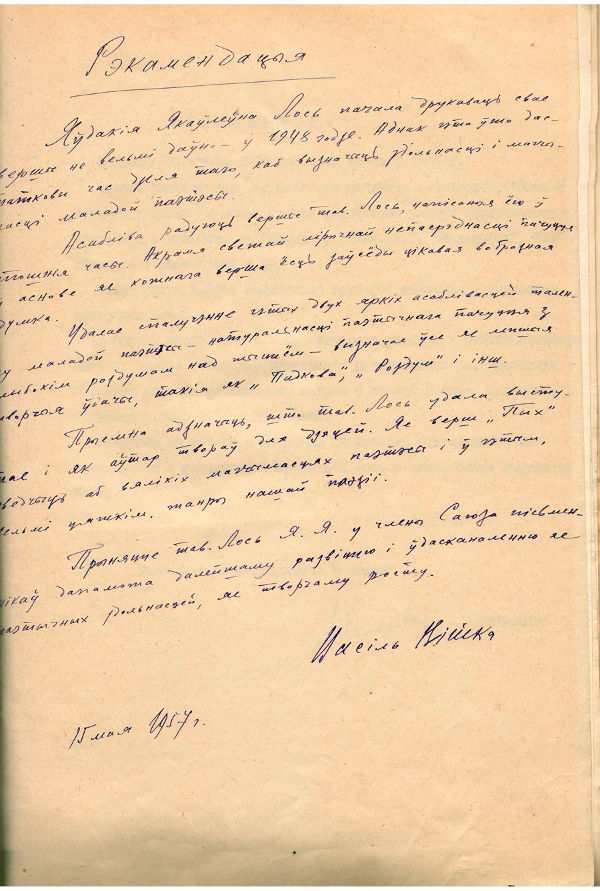 Рэкамендацыя
Яўдакія Якаўлеўна Лось пачала друкаваць свае
вершы не вельмі даўно – у 1948 годзе. Аднак гэта ўжо дас-
татковы час для таго, каб вызначыць здольнасці і магчы-
масці маладой паэтэсы.
Асабліва радуюць вершы тав. Лось, напісаныя ёю ў
апошнія часы. Акрамя светлай лірычнай непасрэднасці пачуцця
ў аснове яе кожнага верша ёсць заўсёды цікавая вобразная
думка.
Удалае спалучэнне гэтых двух яркіх асаблівасцей тален-
ту маладой паэтэсы – натуральнасці паэтычнага пачуцця з
глыбокім роздумам над жыццём – вызначае ўсе яе лепшыя
творчыя ўдачы, такія як „Падкова", „Роздум" і інш.
Прыемна адзначыць, што тав. Лось удала высту-
пае і як аўтар твораў для дзяцей. Яе верш „Пых"
сведчыць аб вялікіх магчымасцях паэтэсы і ў гэтым,
вельмі цяжкім, жанры нашай паэзіі.
Прыняцце тав. Лось Я. Я. у члены Саюза пісьмен-
нікаў дапаможа далейшаму развіццю і ўдасканаленню яе
паэтычных здольнасцей, яе творчаму росту.
Васіль Вітка
15 мая 1957 г.